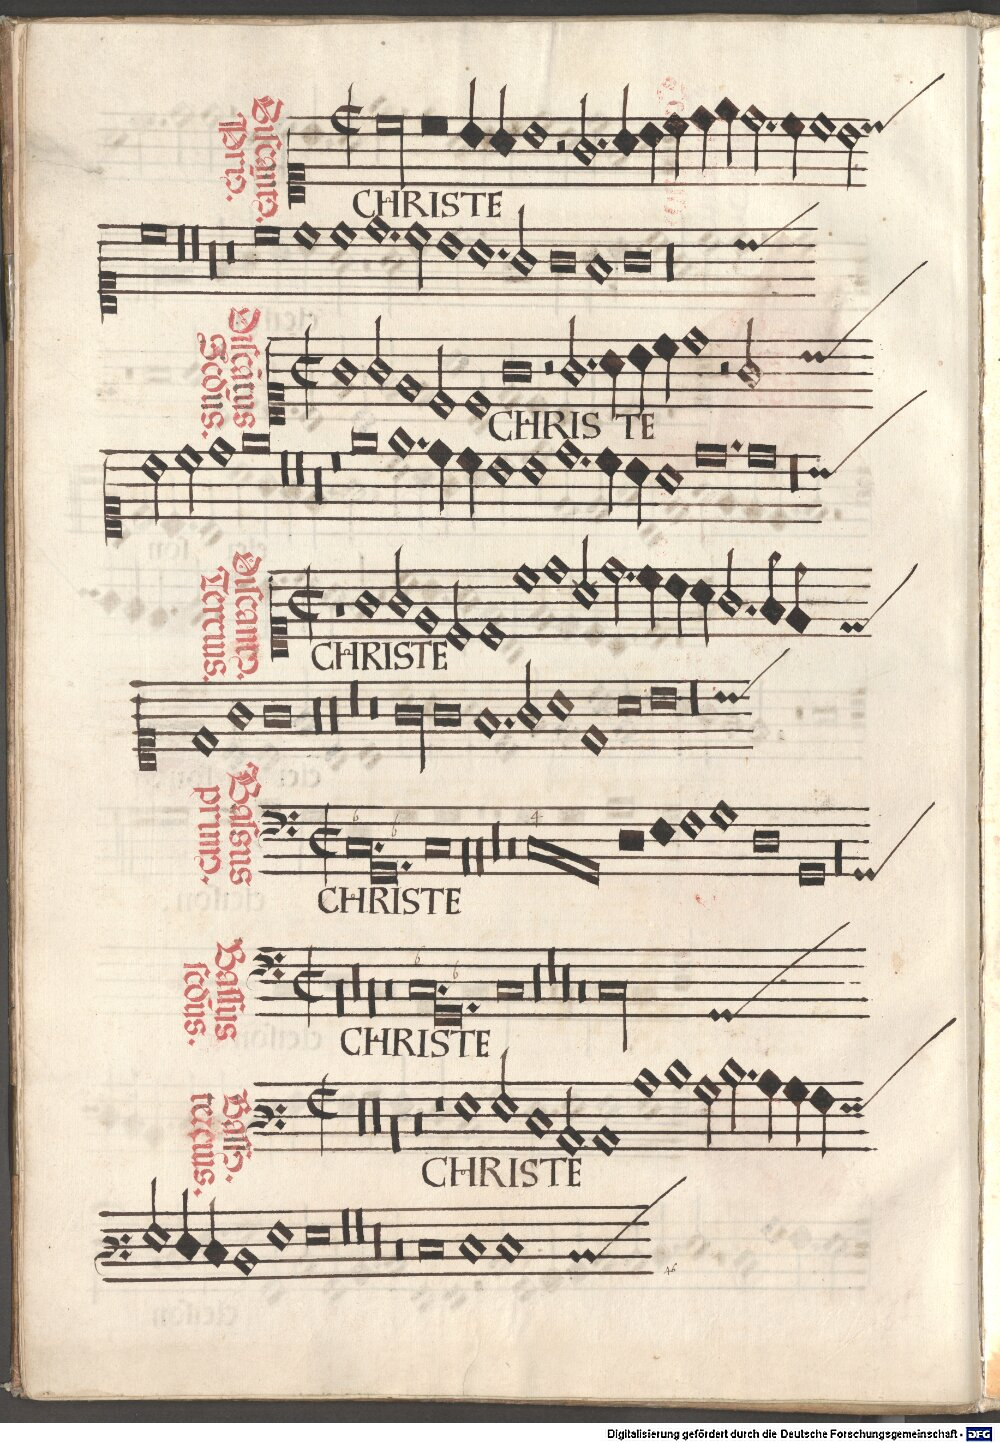 Discantꝰ
Priꝰ.
CHRISTE
Discantus
Secdus.
CHRIS TE
Discantꝰ
Tercius.
CHRISTE
Bassus
primꝰ.
6
6
4
CHRISTE
Bassus
secdus.
6
6
CHRISTE
Bassꝰ.
tercius.
CHRISTE
46
Digitalisierung gefördert durch die Deutsche Forschungsgemeinschaft - DFG